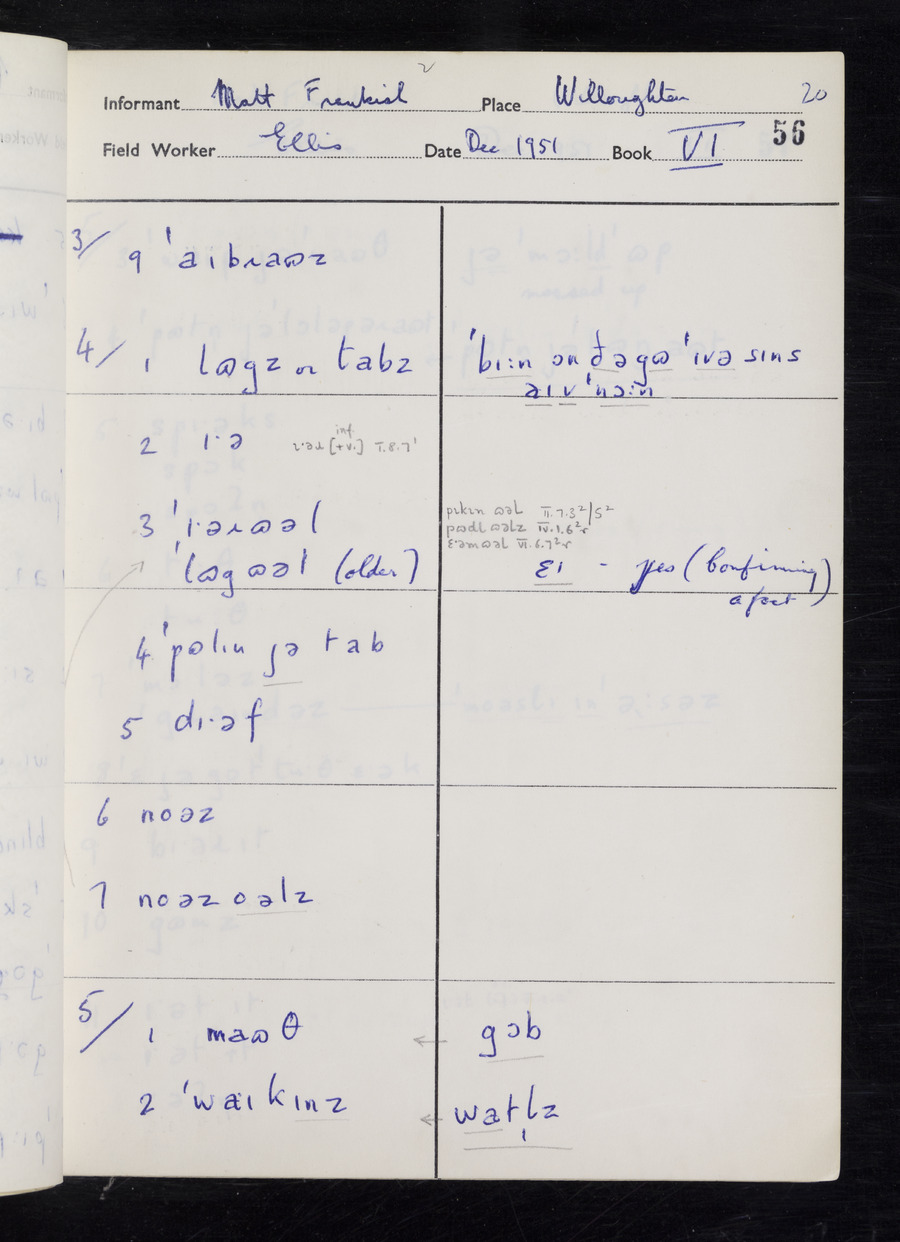 Informant Matt Frankish Place Willoughton 20
Field Worker Ellis Date Dec 1951 Book VI 56
3/ 9 ˈaɪbɹaʊz
4/ 1 lʊgz or tabz
ˈbɪ:n ən ðəgʊ ˈɪvə sɪns
aɪv ˈnɔ:n
2 ɪ·ə
inf.
[+v.] I.8.7
3 ˈɪəɹʊəl
ˈlʊgʊəl (older)
pɪkɪn ʊəl II.7.3²/5²
pʊdl ʊəlz IV.1.6²
ɛəmʊəl VI.6.7²
ɛɪ - yes (confirming
a fact)
4 ˈpʊlɪn jə tab
5 dɪ·əf
6 noəz
7 noəzoəlz
5/ 1 maʊθ ← gɔb
2 ˈwaɪkɪnz ← watl̩z